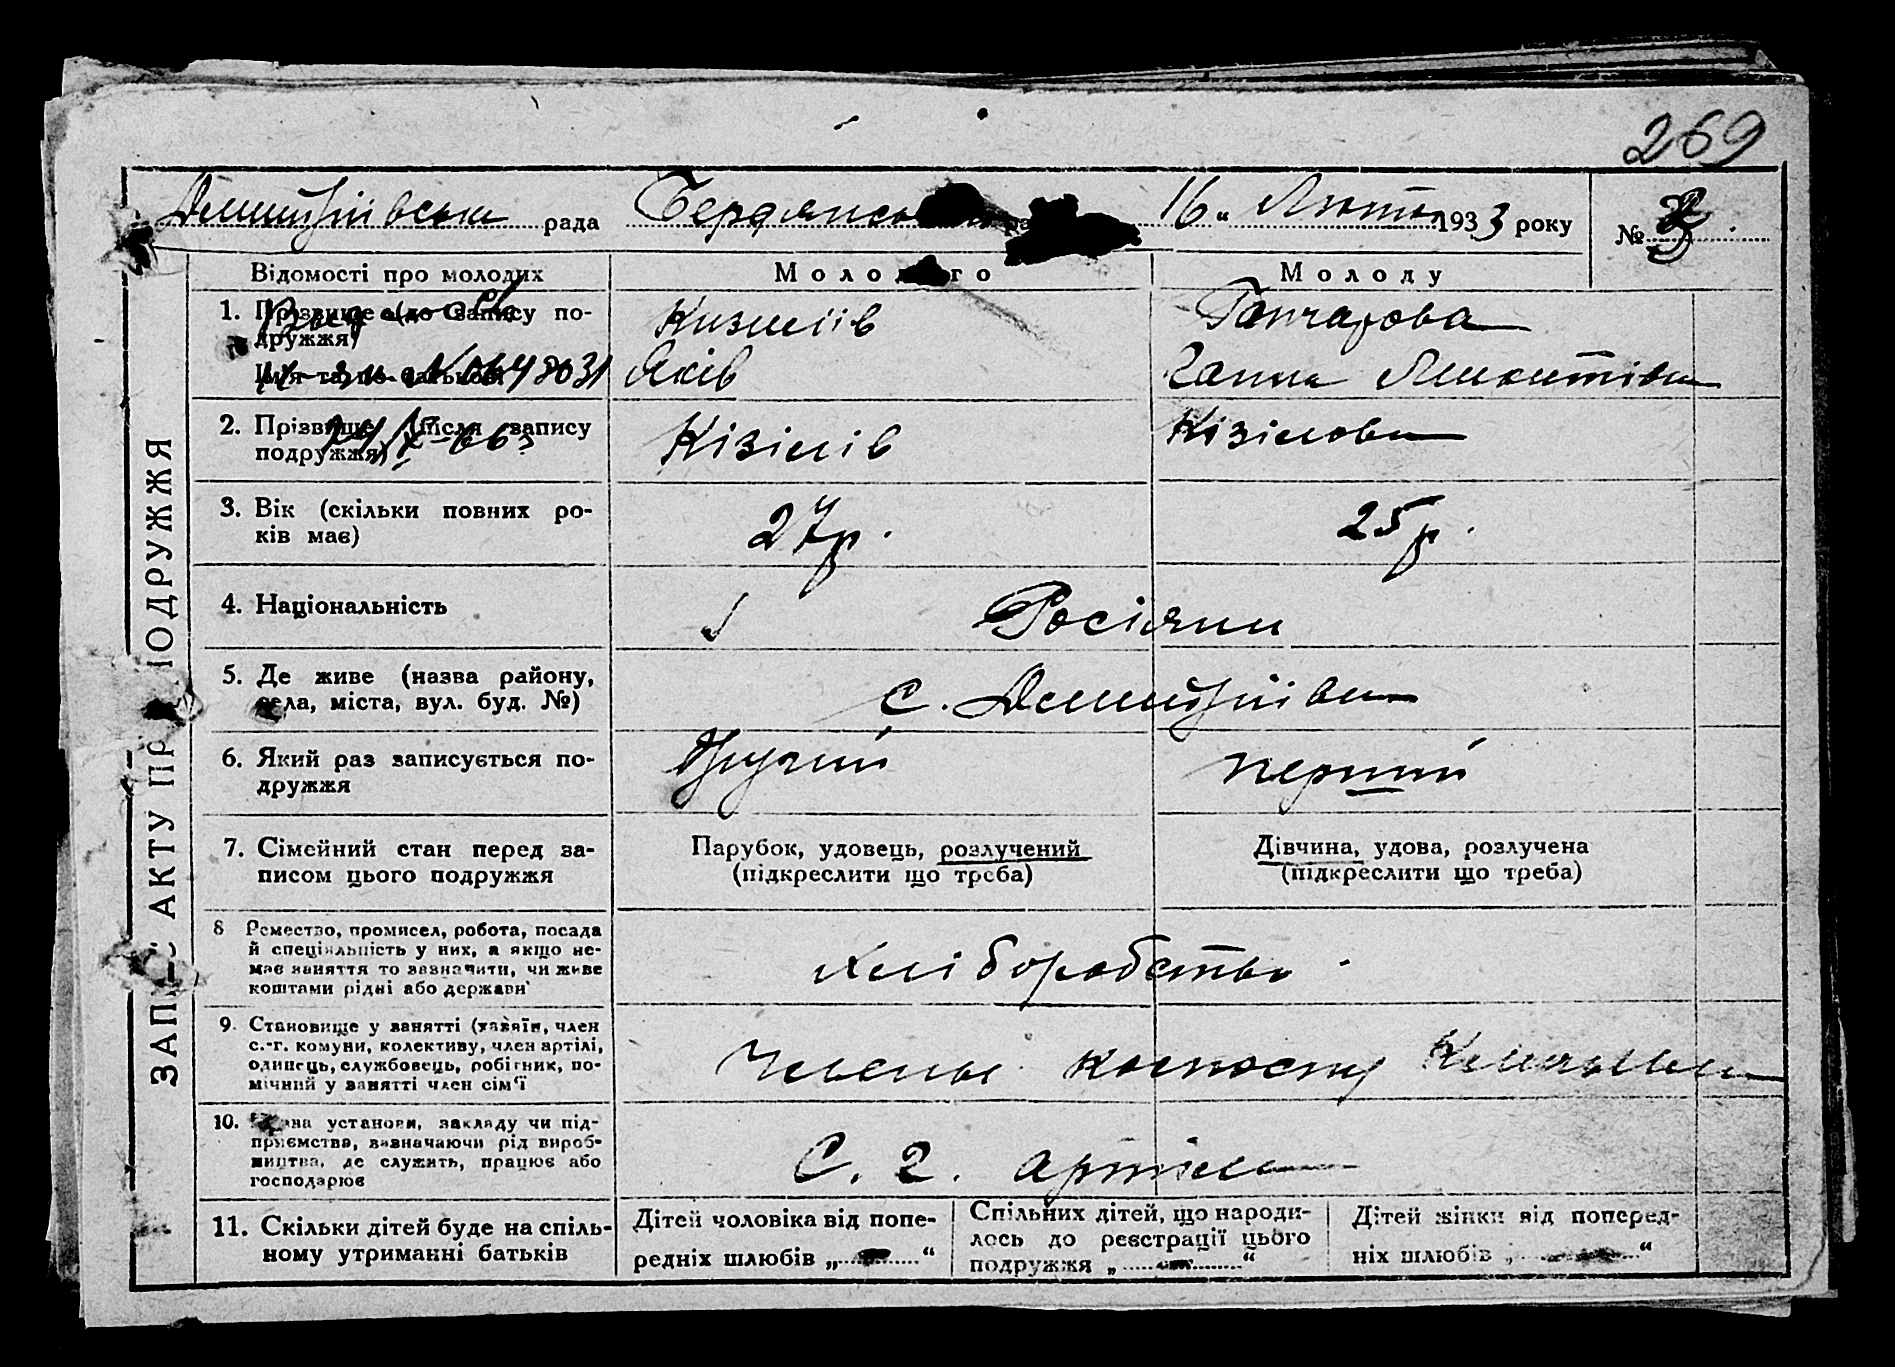 269
Дмитріївська рада Бердянсь 16 „ Лютого 1933 року №
Відомості про молодих Молодого Молоду
1. Прізвище (до запису по- Кизилів Гончарова
дружжя)
Ім'я та по батькові Яків Ганна
2. Прізвище (після запису Кізілів Кізілова
подружжя)
3. Вік (скільки повних ро- 27 р. 25 р.
ків має)
4. Національність Росіяни
5. Де живе (назва району, с. Дмитріївка
села, міста, вул. буд. №)
6. Який раз записується по- Другий перший
дружжя
7. Сімейний стан перед за- Парубок, удовець, розлучений Дівчина, удова, розлучена
писом цього подружжя (підкреслити що треба) (підкреслити що треба)
8 Ремество, промисел, робота, посада
й спеціяльність у них, а якщо не- хліборобство
має заняття то зазначити, чи живе
коштами рідні або держави
9. Становище у занятті (хазяїн, член
с.-г. комуни, колективу, член артілі,
одинець, службовець, робітник, по- колгоспу
мічний у занятті член сім'ї
10. установи, закладу чи під-
приємства, зазначаючи рід вироб- С. г. артіль
ництва, де служить, працює або
господарює
11. Скільки дітей буде на спіль- Дітей чоловіка від попе- Спільних дітей, що народи- Дітей жінки від поперед-
ному утриманні батьків редніх шлюбів „ “ лось до реєстрації цього ніх шлюбів „ “
подружжя „ “
ЗАПИС АКТУ ПРО ПОДРУЖЖЯ